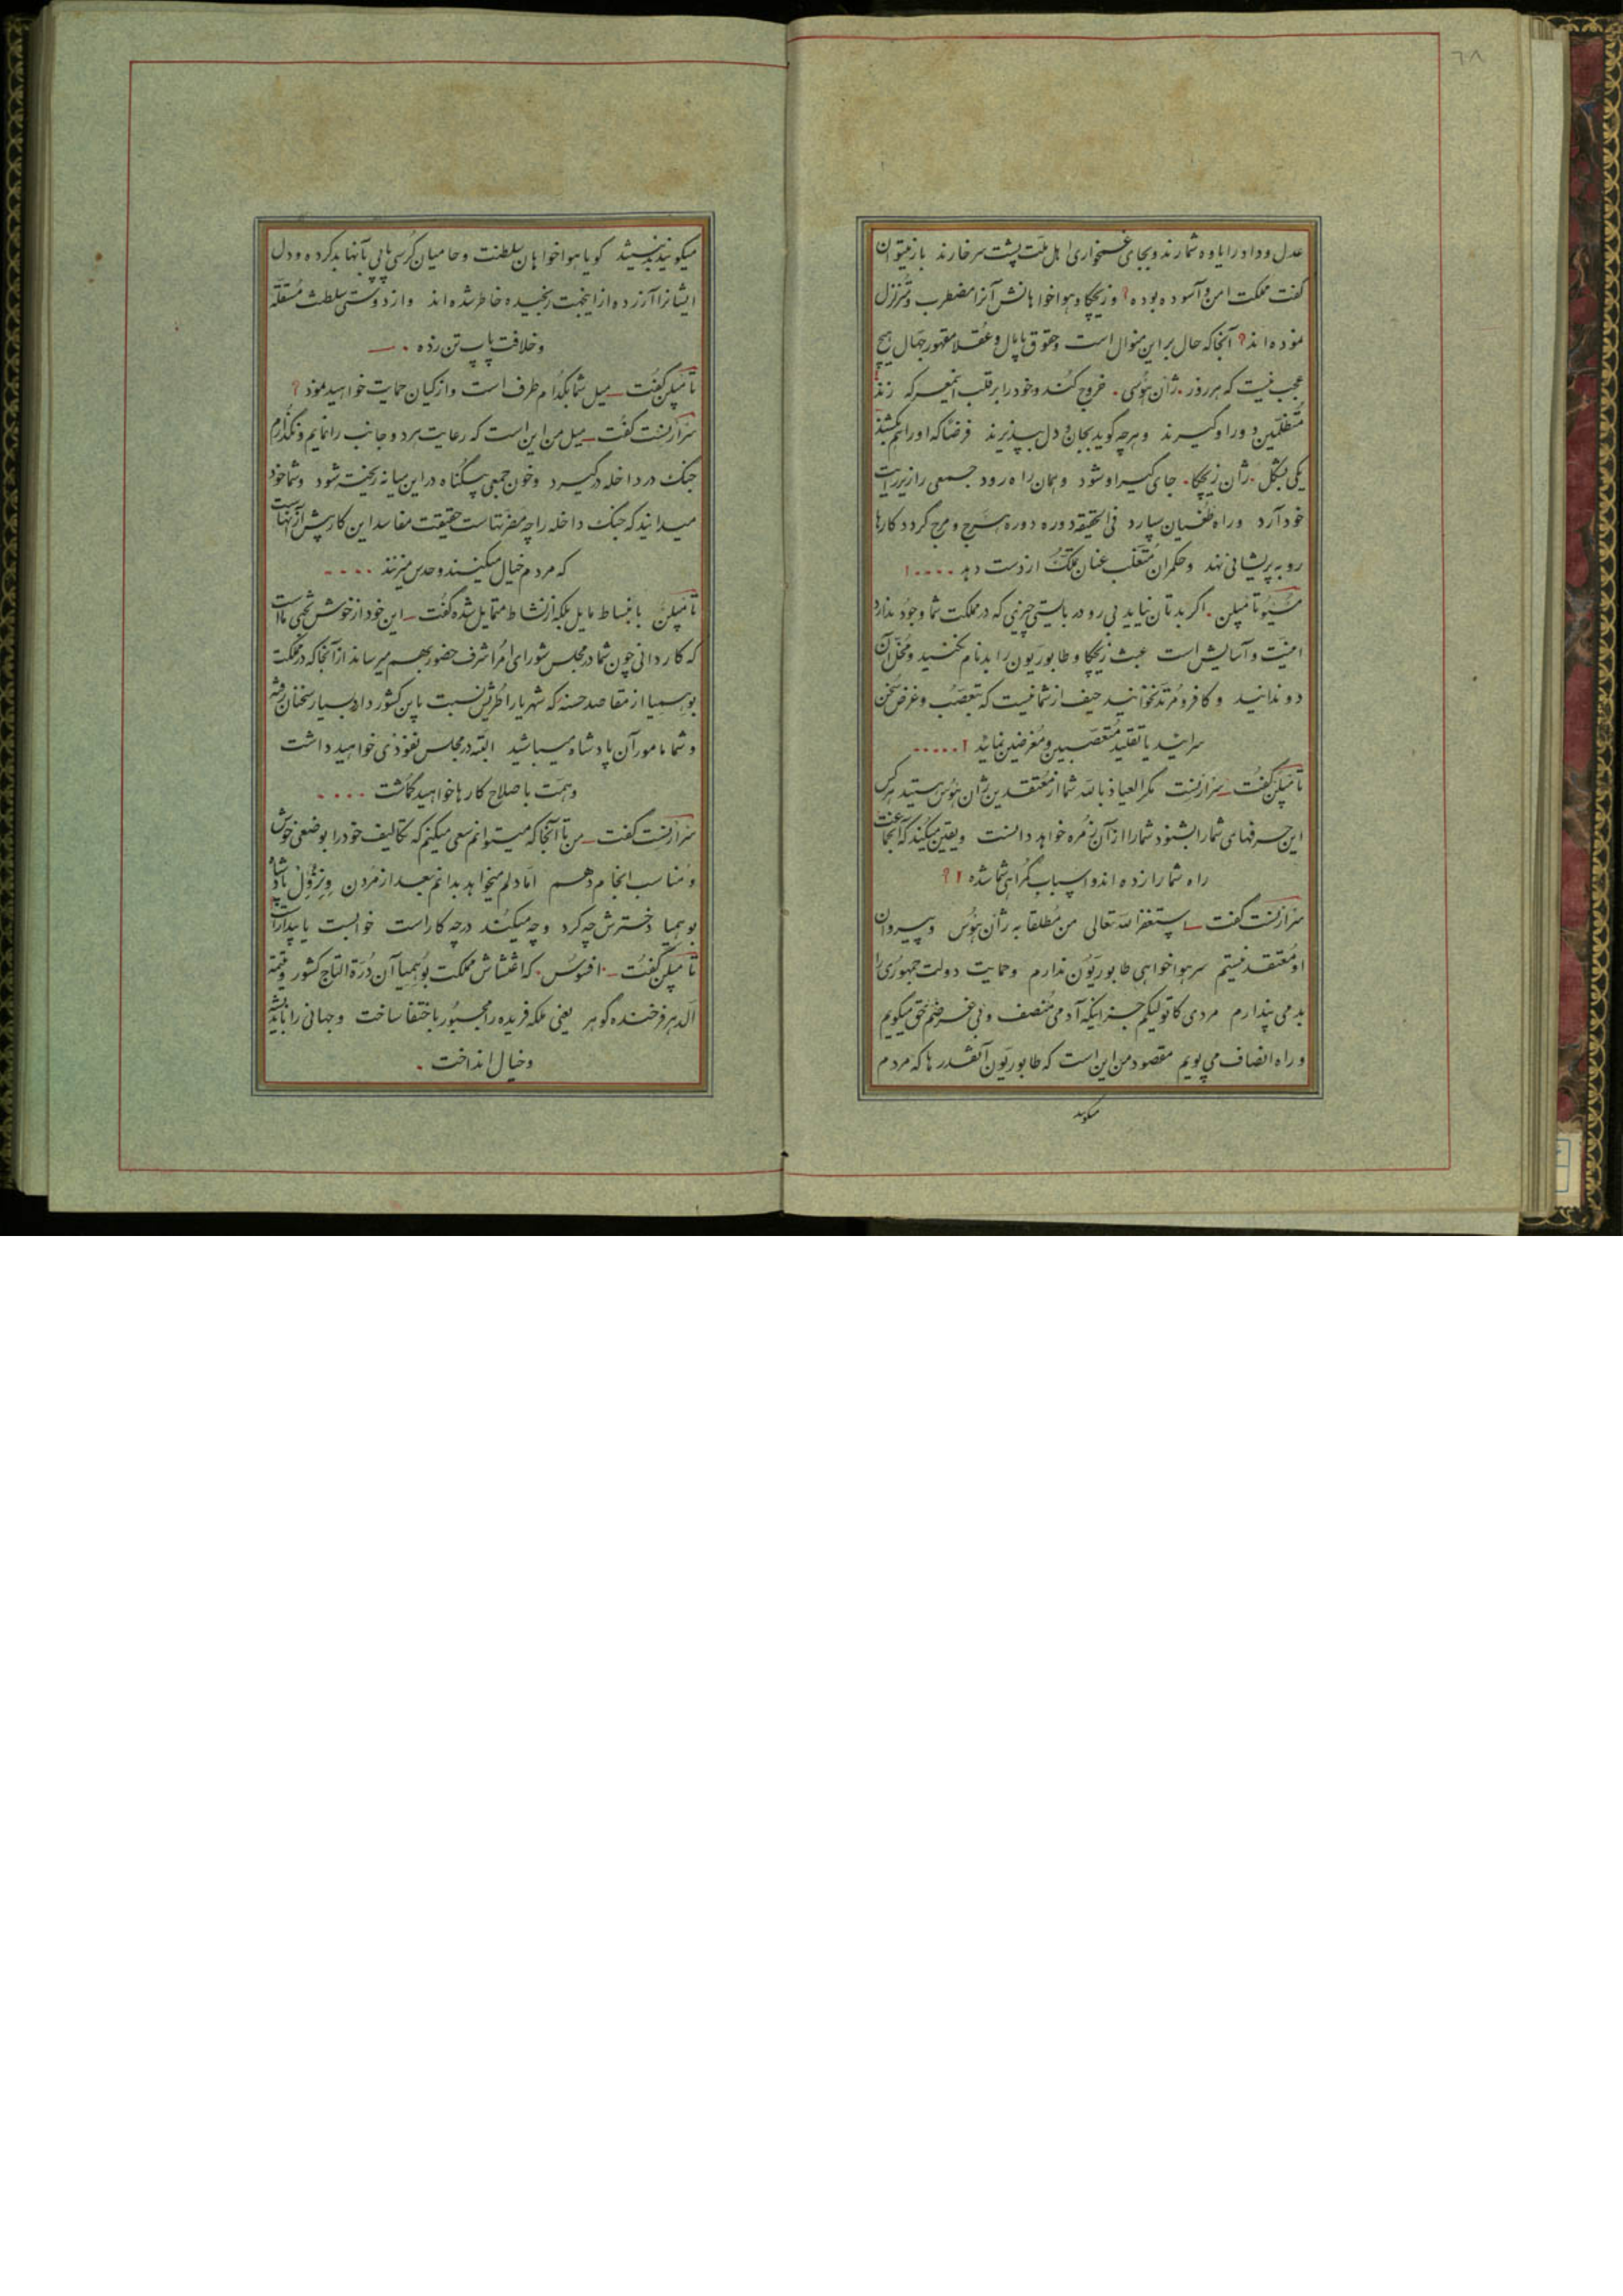 ٦٨
عدل و داد را یاوه شمارند و بجای غمخواری اهل ملّت پشت سر خارند باز میتوان
گفت مملکت امن و آسوده بوده؟ و زیچکا و هواخواهانش آنرا مضطرب و متزلزل
نموده‌اند؟ آنجا که حال بر این منوال است و حقوق پامال و عُقلا مقهور جهال هیچ
عجب نیست که هر روز ژان هوُسی خروج کند و خود را بر قلب زند
متظلّمین دور او گیرند و هر چه گوید بجان و دل بپذیرند فرضاً که او را هم بکشند
یکی بشکل ژان زیچکا جای گیر او شود و همان راه رود جمعی را زیر رایت
خود آرد و راه طغیان سپارد فی الحقیقه دوره دوره هرج و مرج گردد کارها
رو به پریشانی نهد و حکمران متغلب عنان تملّک از دست دهد ....!
مُسیُو تامپلن اگر بدتان نیاید بی رودربایستی چیزی که در مملکت شما وجود ندارد
امنیّت و آسایش است عبث زیچکا و طابوریون را بدنام نکنید و مُخل آن
دو ندانید و کافر و مُرتد نخوانید حیف از شما نیست که بتعصّب و غرض سخن
سرائید یا تقلید متعصبین و مُغرضین نمائید ! .....
تامپلن گفت ـ سرارنست مگر العیاذ بالله شما از معتقدین ژان هوُس هستید هر کس
این حرفهای شما را بشنود شما را از آن زمُره خواهد دانست و یقین میکند که آنجماعت
راه شما را زده‌اند و اسباب گمراهی شما شده ! ؟
سرارنست گفت ـ استغفر الله تعالی من مُطلقا به ژان هوُس و پیروان
او مُعتقد نیستم سر هواخواهی طابوریَوُن ندارم و حمایت دولت جمهوُری را
بد می پندارم مردی کاتولیکم جز اینکه آدمی مُنصف و بی غرضم حق میگویم
و راه انصاف می پویم مقصود من این است که طابوریَوُن آنقدرها که مردم
میگویند
میگویند بد نیستند گویا هواخواهان سلطنت و حامیان کُرسی پاپی بآنها بد کرده و دل
ایشانرا آزرده از اینجهت رنجیده خاطر شده‌اند و از دوستی سلطنت مُستقلّه
و خلافت پاپ تن زده .
تامپلن گفت ـ میل شما بکدام طرف است و از کیان حمایت خواهید نمود ؟
سرارنست گفت ـ میل من این است که رعایت هر دو جانب را نمایم و نگذارم
جنگ در داخله درگیرد و خون جمعی بیگناه در این میانه ریخته شود و شما خود
میدانید که جنگ داخله را چه مضرتهاست حقیقت مفاسد این کار بیش از آنهاست
که مردم خیال میکنند و حدس میزنند ....
تامپلن بانبساط مایل بلکه از نشاط متمایل شده گفت ـ این خود از خوش بختی ما است
که کاردانی چون شما در مجلس شورای امُرا شرف حضور بهم میرساند از آنجا که در مملکت
بوهیمیا از مقاصد حسنه که شهریار اطریش نسبت باین کشور دارد بسیار سخنان رفته
و شما مامور آن پادشاه میباشید البته در مجلس نفوذی خواهید داشت
و همّت باصلاح کارها خواهید گماشت ....
سرارنست گفت ـ من تا آنجا که میتوانم سعی میکنم که تکالیف خود را بوضعی خوش
و مُناسب انجام دهم امّا دلم میخواهد بدانم بعد از مُردن پادشاه
بوهمیا دخترش چه کرد و چه میکُند در چه کار است خوابست یا بیدار است
تامپلن گفت ـ افسوس که اغتشاش مملکت بوُهیمیا آن دُرّة التاج کشور و یتیمه
الدهر فرخنده گوهر یعنی ملکه فریده را مجبُور باختفا ساخت و جهانی را باندیشه
و خیال انداخت .